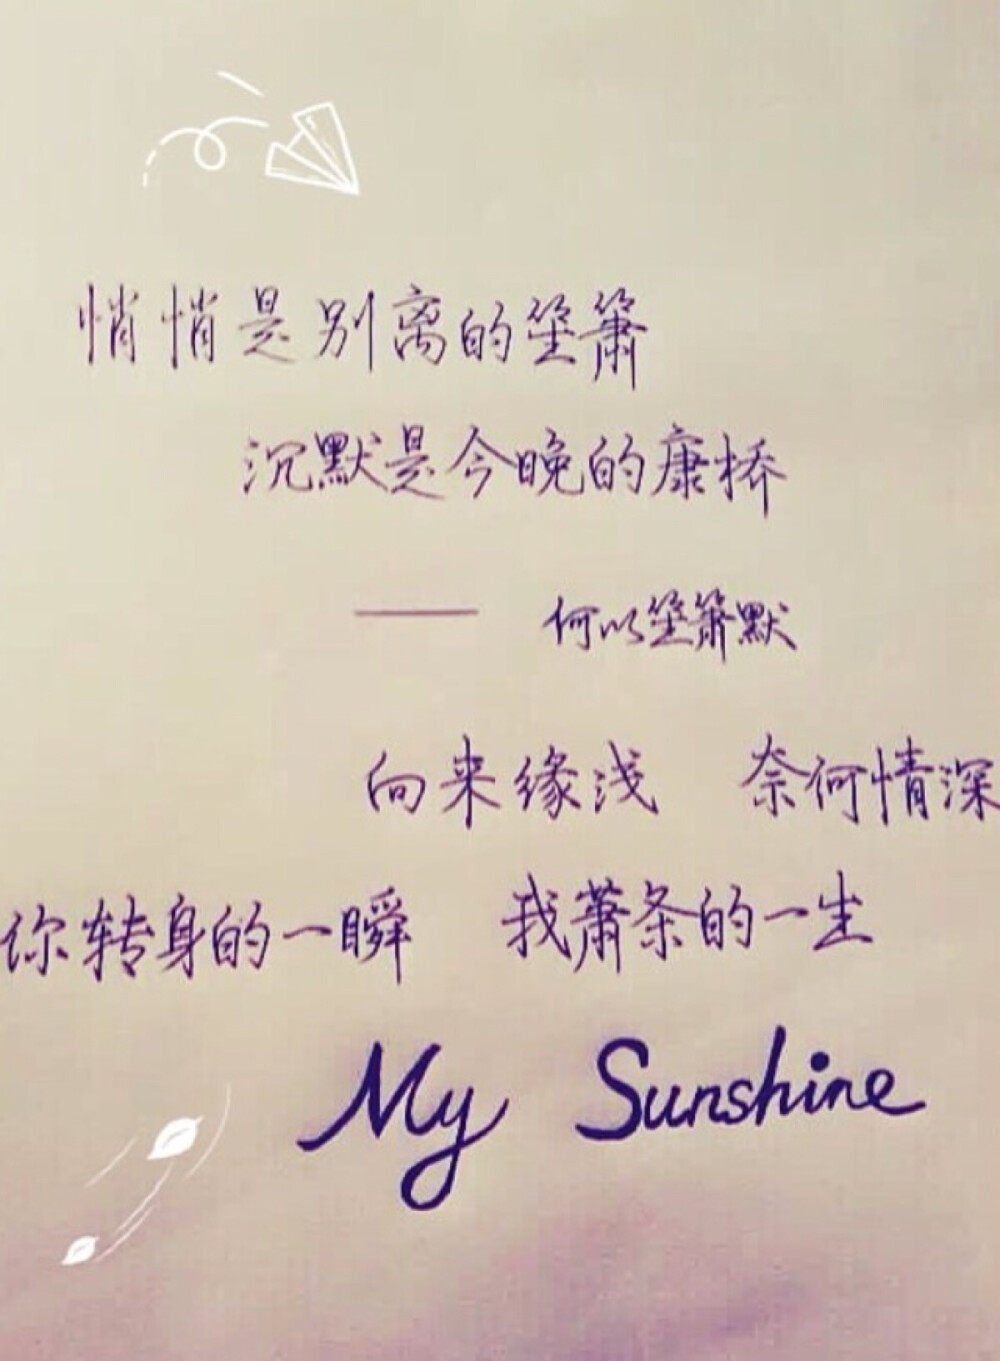 悄悄是别离的笙箫
沉默是今晚的康桥
—— 何以笙箫默
向来缘浅 奈何情深
你转身的一瞬 我萧条的一生
My Sunshine